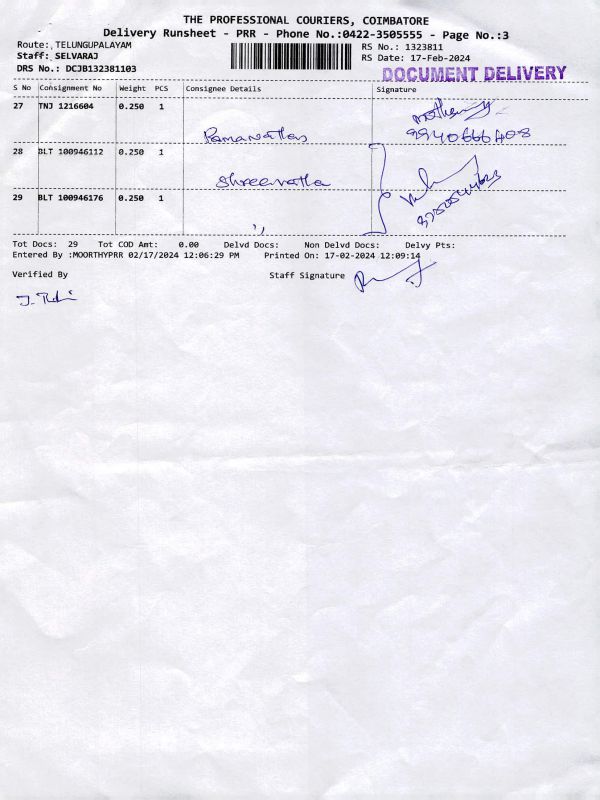 THE PROFESSIONAL COURIERS, COIMBATORE
Delivery Runsheet - PRR - Phone No.:0422-3505555 - Page No.:3
Route: TELUNGUPALAYAM
Staff: SELVARAJ
DRS No.: DCJB132381103
RS No.: 1323811
RS Date: 17-Feb-2024
DOCUMENT DELIVERY
S No Consignment No Weight PCS Consignee Details Signature
27 TNJ 1216604 0.250 1
Ramanathan
9940666408
28 BLT 100946112 0.250 1
Shreevatha
29 BLT 100946176 0.250 1
,,
Tot Docs: 29 Tot COD Amt: 0.00 Delvd Docs: Non Delvd Docs: Delvy Pts:
Entered By :MOORTHYPRR 02/17/2024 12:06:29 PM Printed On: 17-02-2024 12:09:14
Verified By Staff Signature